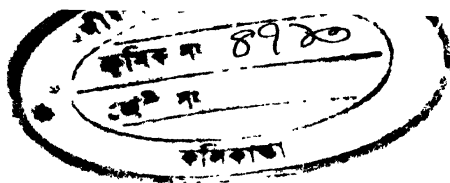 ক্রমিক নং ৪৭২০
শ্রেণী নং
কলিকাতা